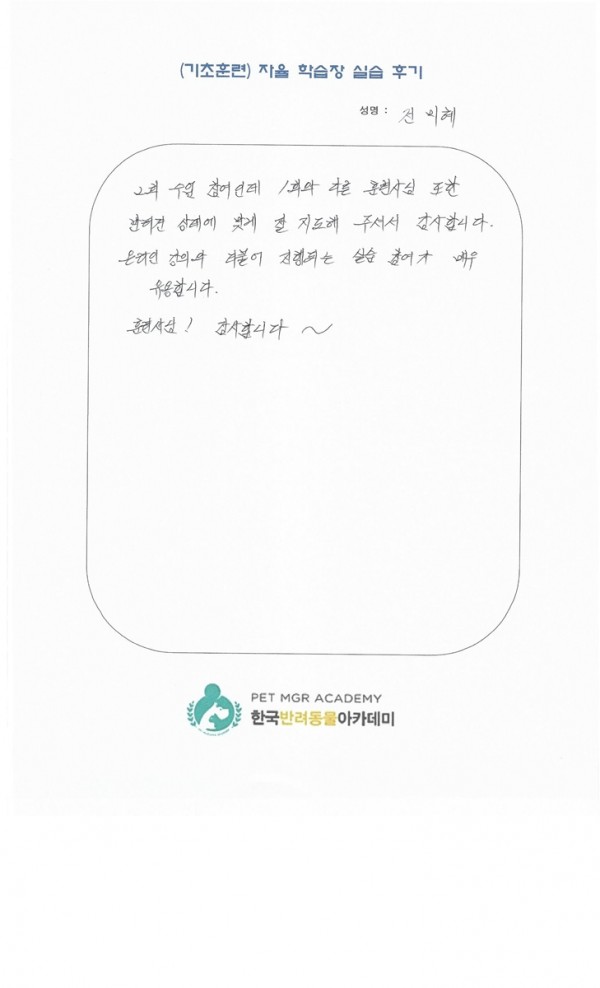 (기초훈련) 자율 학습장 실습 후기
성명 : 전 지혜
2회 수업 참여인데 1회와 다른 훈련사님 또한
반려견 상태에 맞게 잘 지도해 주셔서 감사합니다.
온라인 강의와 더불어 진행되는 실습 참여가 매우
유용합니다.
훈련사님! 감사합니다 ~
PET MGR ACADEMY
한국반려동물아카데미